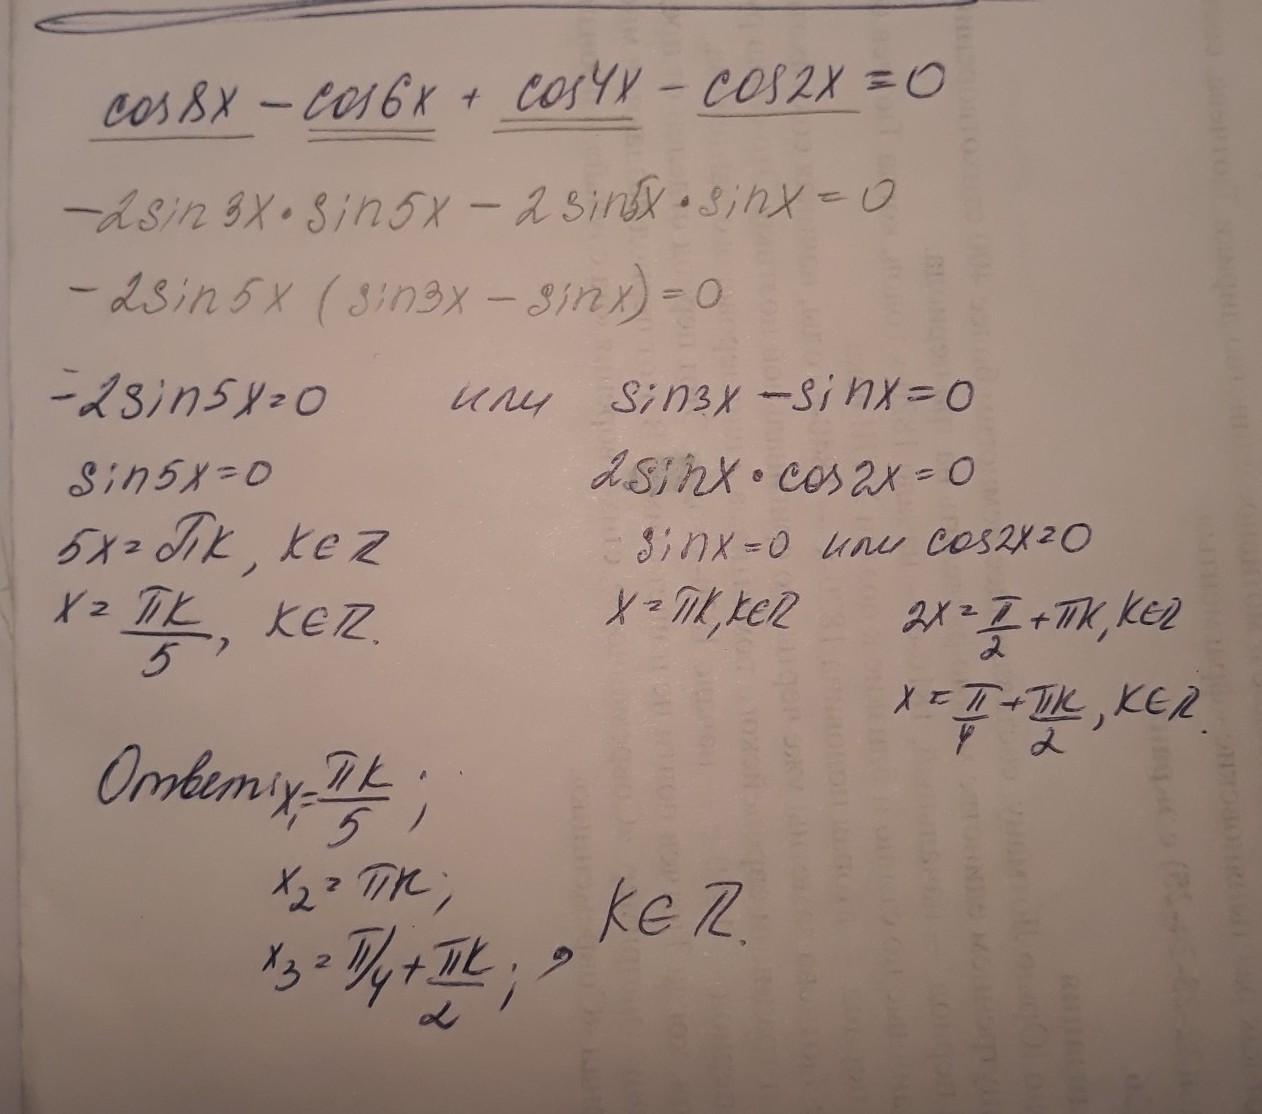 cos8x − cos6x + cos4x − cos2x = 0
−2sin3x · sin5x − 2sin5x · sinx = 0
−2sin5x (sin3x − sinx) = 0
−2sin5x=0 или sin3x − sinx = 0
sin5x=0 2sinx · cos2x = 0
5x= πk, k∈Z sinx=0 или cos2x=0
x= πk/5, k∈Z. x = πk, k∈Z 2x= π/2 + πk, k∈Z
x = π/4 + πk/2, k∈Z.
Ответ: x₁= πk/5;
x₂= πk;
x₃= π/4 + πk/2; , k∈Z.